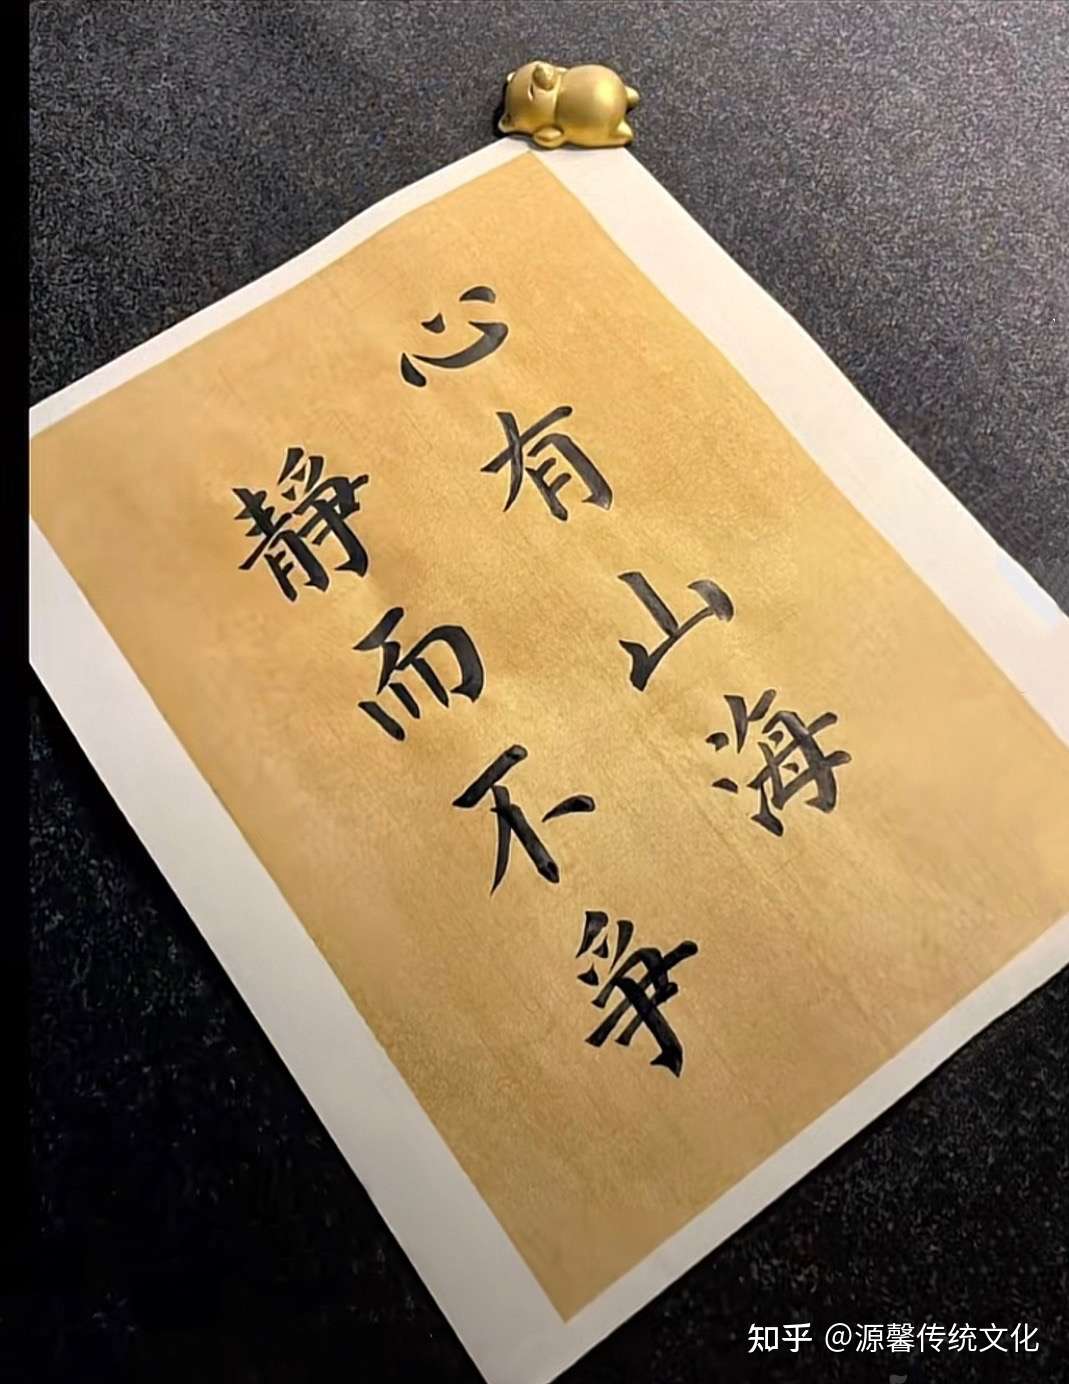 心有山海
靜而不爭
知乎 @源馨传统文化